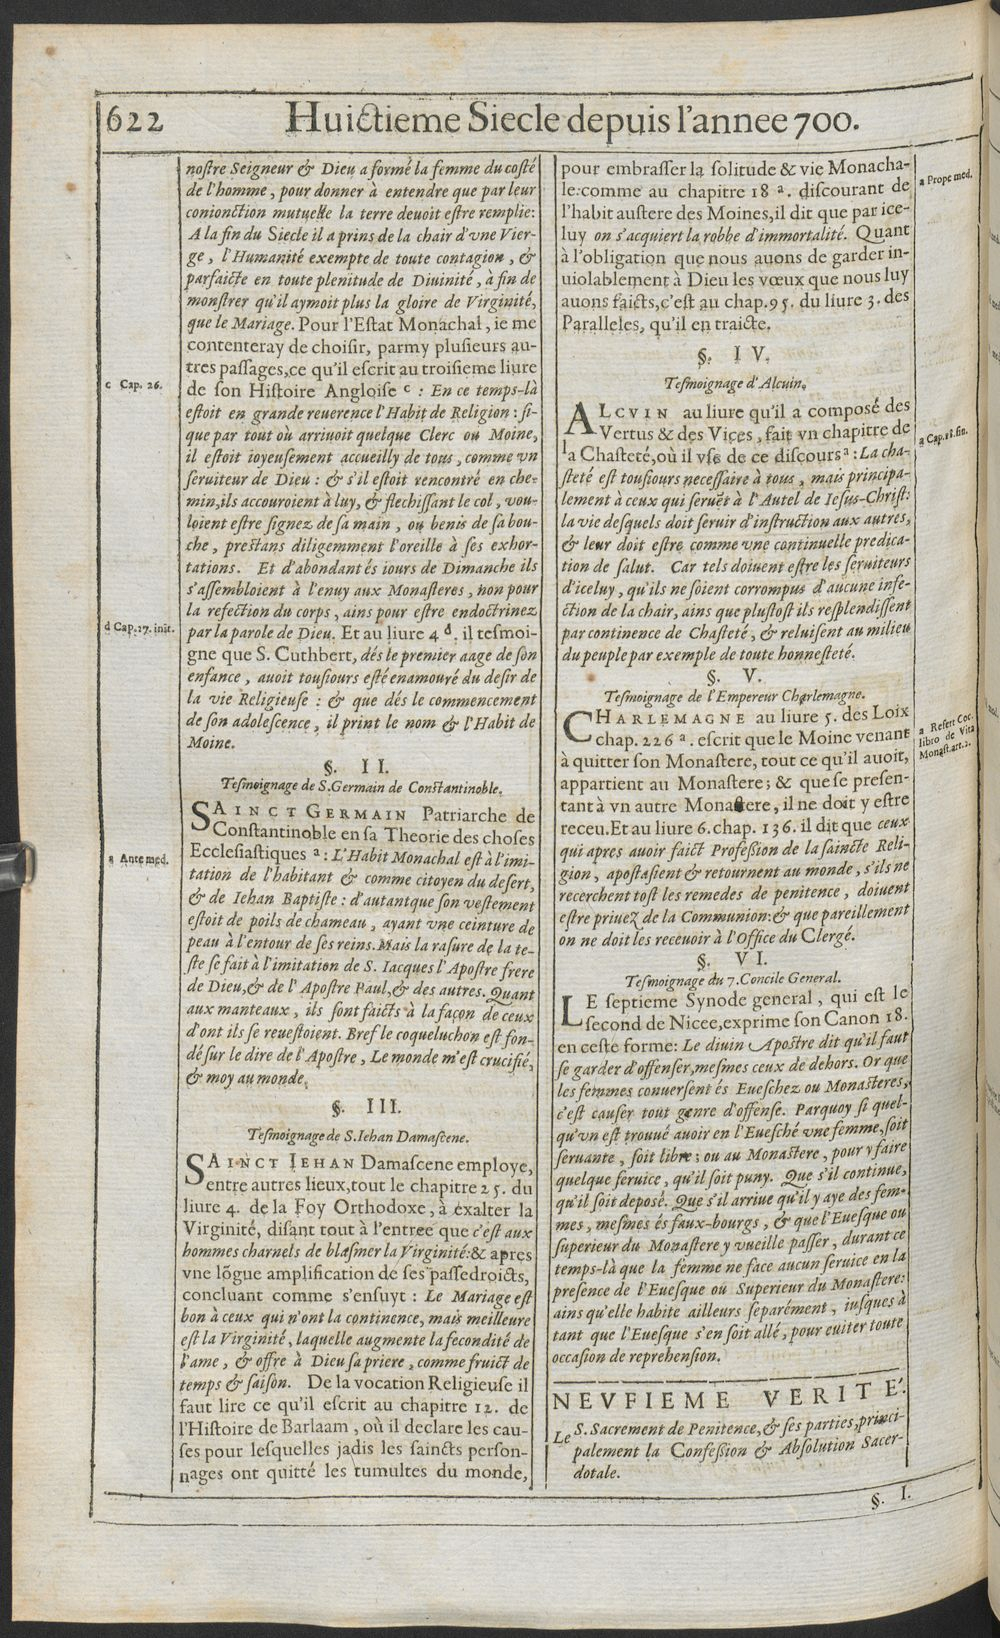 622
Huictieme Siecle depuis l'annee 700.
nostre Seigneur & Dieu a formé la femme du costé
de l'homme, pour donner à entendre que par leur
conionction mutuelle la terre deuoit estre remplie:
A la fin du Siecle il a prins de la chair d'vne Vier-
ge, l'Humanité exempte de toute contagion, &
parfaicte en toute plenitude de Diuinité, à fin de
monstrer qu'il aymoit plus la gloire de Virginité,
que le Mariage. Pour l'Estat Monachal, ie me
contenteray de choisir, parmy plusieurs au-
tres passages, ce qu'il escrit au troisieme liure
c Cap. 26.
de son Histoire Angloise c : En ce temps-là
estoit en grande reuerence l'Habit de Religion: si-
que par tout où arriuoit quelque Clerc ou Moine,
il estoit ioyeusement accueilly de tous, comme vn
seruiteur de Dieu: & s'il estoit rencontré en che-
min, ils accouroient à luy, & flechissant le col, vou-
loient estre signez de sa main, ou benis de sa bou-
che, prestans diligemment l'oreille à ses exhor-
tations. Et d'abondant és iours de Dimanche ils
s'assembloient à l'enuy aux Monasteres, non pour
la refection du corps, ains pour estre endoctrinez
d Cap. 27. init.
par la parole de Dieu. Et au liure 4 d. il tesmoi-
gne que S. Cuthbert, dés le premier aage de son
enfance, auoit tousiours esté enamouré du desir de
la vie Religieuse : & que dés le commencement
de son adolescence, il print le nom & l'Habit de
Moine.
§. II.
Tesmoignage de S. Germain de Constantinoble.
SAINCT GERMAIN Patriarche de
Constantinoble en sa Theorie des choses
a Ante med.
Ecclesiastiques a: L'Habit Monachal est à l'imi-
tation de l'habitant & comme citoyen du desert,
& de Iehan Baptiste: d'autantque son vestement
estoit de poils de chameau, ayant vne ceinture de
peau à l'entour de ses reins. Mais la rasure de la te-
ste se fait à l'imitation de S. Iacques l'Apostre frere
de Dieu, & de l'Apostre Paul, & des autres. Quant
aux manteaux, ils sont faicts à la façon de ceux
d'ont ils se reuestoient. Bref le coqueluchon est fon-
dé sur le dire de l'Apostre, Le monde m'est crucifié,
& moy au monde.
§. III.
Tesmoignage de S. Iehan Damascene.
SAINCT IEHAN Damascene employe,
entre autres lieux, tout le chapitre 25. du
liure 4. de la Foy Orthodoxe, à exalter la
Virginité, disant tout à l'entree que c'est aux
hommes charnels de blasmer la Virginité: & apres
vne lõgue amplification de ses passedroicts,
concluant comme s'ensuyt : Le Mariage est
bon à ceux qui n'ont la continence, mais meilleure
est la Virginité, laquelle augmente la fecondité de
l'ame, & offre à Dieu sa priere, comme fruict de
temps & saison. De la vocation Religieuse il
faut lire ce qu'il escrit au chapitre 12. de
l'Histoire de Barlaam, où il declare les cau-
ses pour lesquelles jadis les saincts person-
nages ont quitté les tumultes du monde,
pour embrasser la solitude & vie Monacha-
a Prope med.
le: comme au chapitre 18 a. discourant de
l'habit austere des Moines, il dit que par ice-
luy on s'acquiert la robbe d'immortalité. Quant
à l'obligation que nous auons de garder in-
uiolablement à Dieu les vœux que nous luy
auons faicts, c'est au chap. 95. du liure 3. des
Paralleles, qu'il en traicte.
§. IV.
Tesmoignage d'Alcuin.
ALCVIN au liure qu'il a composé des
Vertus & des Vices, fait vn chapitre de
a Cap. 18. fin.
la Chasteté, où il vse de ce discours a: La cha-
steté est tousiours necessaire à tous, mais principa-
lement à ceux qui seruẽt à l'Autel de Iesus-Christ:
la vie desquels doit seruir d'instruction aux autres,
& leur doit estre comme vne continuelle predica-
tion de salut. Car tels doiuent estre les seruiteurs
d'iceluy, qu'ils ne soient corrompus d'aucune infe-
ction de la chair, ains que plustost ils resplendissent
par continence de Chasteté, & reluisent au milieu
du peuple par exemple de toute honnesteté.
§. V.
Tesmoignage de l'Empereur Charlemagne.
CHARLEMAGNE au liure 5. des Loix
a Refert Coc.
libro de Vita
Monast. art. 2.
chap. 226 a. escrit que le Moine venant
à quitter son Monastere, tout ce qu'il auoit,
appartient au Monastere; & que se presen-
tant à vn autre Monastere, il ne doit y estre
receu. Et au liure 6. chap. 136. il dit que ceux
qui apres auoir faict Profession de la saincte Reli-
gion, apostasient & retournent au monde, s'ils ne
recerchent tost les remedes de penitence, doiuent
estre priuez de la Communion: & que pareillement
on ne doit les receuoir à l'Office du Clergé.
§. VI.
Tesmoignage du 7. Concile General.
LE septieme Synode general, qui est le
second de Nicee, exprime son Canon 18.
en ceste forme: Le diuin Apostre dit qu'il faut
se garder d'offenser, mesmes ceux de dehors. Or que
les femmes conuersent és Eueschez ou Monasteres,
c'est causer tout genre d'offense. Parquoy si quel-
qu'vn est trouué auoir en l'Euesché vne femme, soit
seruante, soit libre; ou au Monastere, pour y faire
quelque seruice, qu'il soit puny. Que s'il continue,
qu'il soit deposé. Que s'il arriue qu'il y aye des fem-
mes, mesmes és faux-bourgs, & que l'Euesque ou
superieur du Monastere y vueille passer, durant ce
temps-là que la femme ne face aucun seruice en la
presence de l'Euesque ou Superieur du Monastere:
ains qu'elle habite ailleurs separément, iusques à
tant que l'Euesque s'en soit allé, pour euiter toute
occasion de reprehension.
NEVFIEME VERITÉ.
Le S. Sacrement de Penitence, & ses parties, princi-
palement la Confession & Absolution Sacer-
dotale.
§. I.